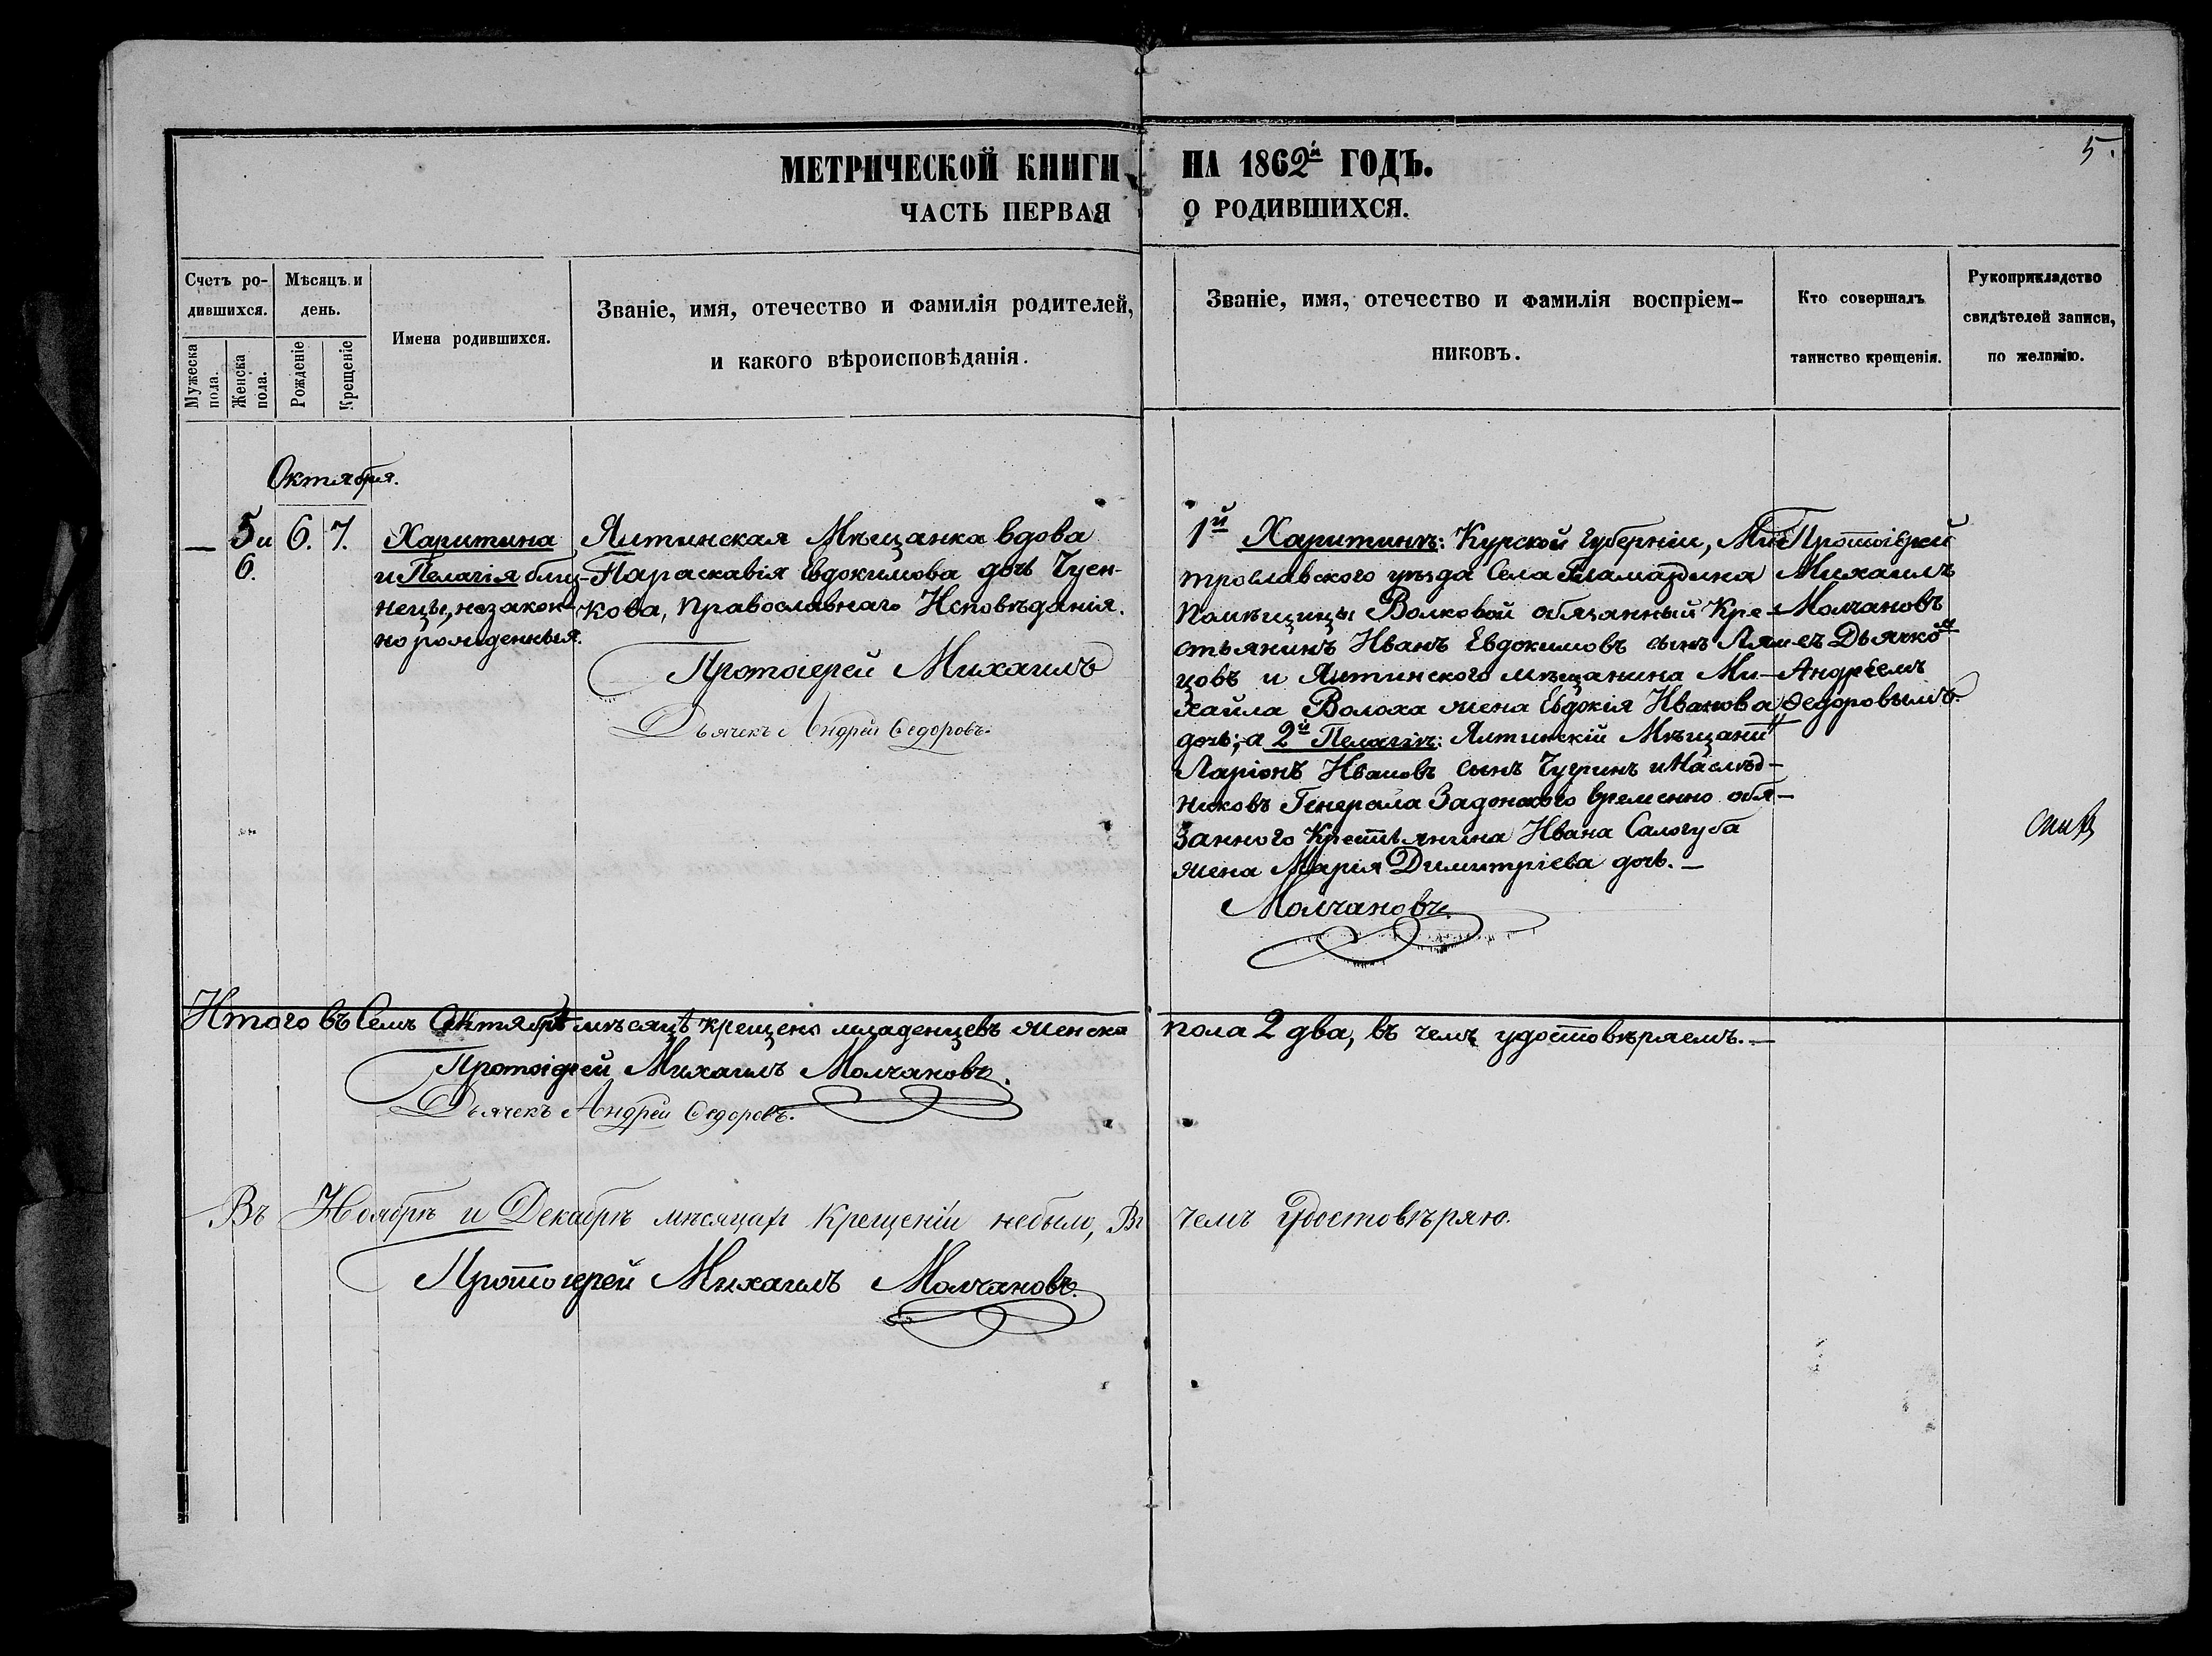 5.
МЕТРИЧЕСКОЙ КНИГИ НА 1862й ГОДЪ.
ЧАСТЬ ПЕРВАЯ О РОДИВШИХСЯ.
Счетъ ро-
дившихся.
Мужеска пола.
Женска пола.
Мѣсяцъ и
день.
Рожденіе
Крещеніе
Имена родившихся.
Званіе, имя, отечество и фамилія родителей,
и какого вѣроисповѣданія.
Званіе, имя, отечество и фамилія воспріем-
никовъ.
Кто совершалъ
таинство крещенія.
Рукоприкладство
свидѣтелей записи,
по желанію.
Октября.
— 5 и 6. 7.
6.
Харитина
и Пелагія близ-
нецы, незакон-
но рожденныя.
Ялтинская Мѣщанка вдова
Параскавія Евдокимова дочь Чусн-
кова, Православнаго Исповѣданія.
Протоіерей Михаилъ
Дьячекъ Андрей Ѳедоровъ.
1й Харитинѣ: Курской Губерніи, Ми-
трославского уѣзда Села
Помѣщицы Волковой обязанный Кре-
стьянинъ Иванъ Евдокимовъ сынъ Лям-
цовъ и Ялтинского мѣщанина Ми-
хаила Волоха жена Евдокія Иванова
дочь; а 2й Пелагіѣ: Ялтинскій Мѣщани
Ларіонъ Ивановъ сынъ Чугринъ и Наслѣд-
никовъ Генерала Задонского временно обя-
занного Крестьянина Ивана Салогуба
жена Марія Димитріева дочь. —
Молчановъ.
Протоіерей
Михаилъ
Молчановъ
съ Дьячком
Андреемъ
Ѳедоровымъ.
Итого въ семъ Октябрѣ мѣсяцѣ крещено младенцевъ женска пола 2 два, въ чемъ удостовѣряемъ. —
Протоіерей Михаилъ Молчановъ.
Дьячекъ Андрей Ѳедоровъ.
Въ Ноябрѣ и Декабрѣ мѣсяцах Крещеній небыло, Въ чемъ Удостовѣряю.
Протоіерей Михаилъ Молчановъ.